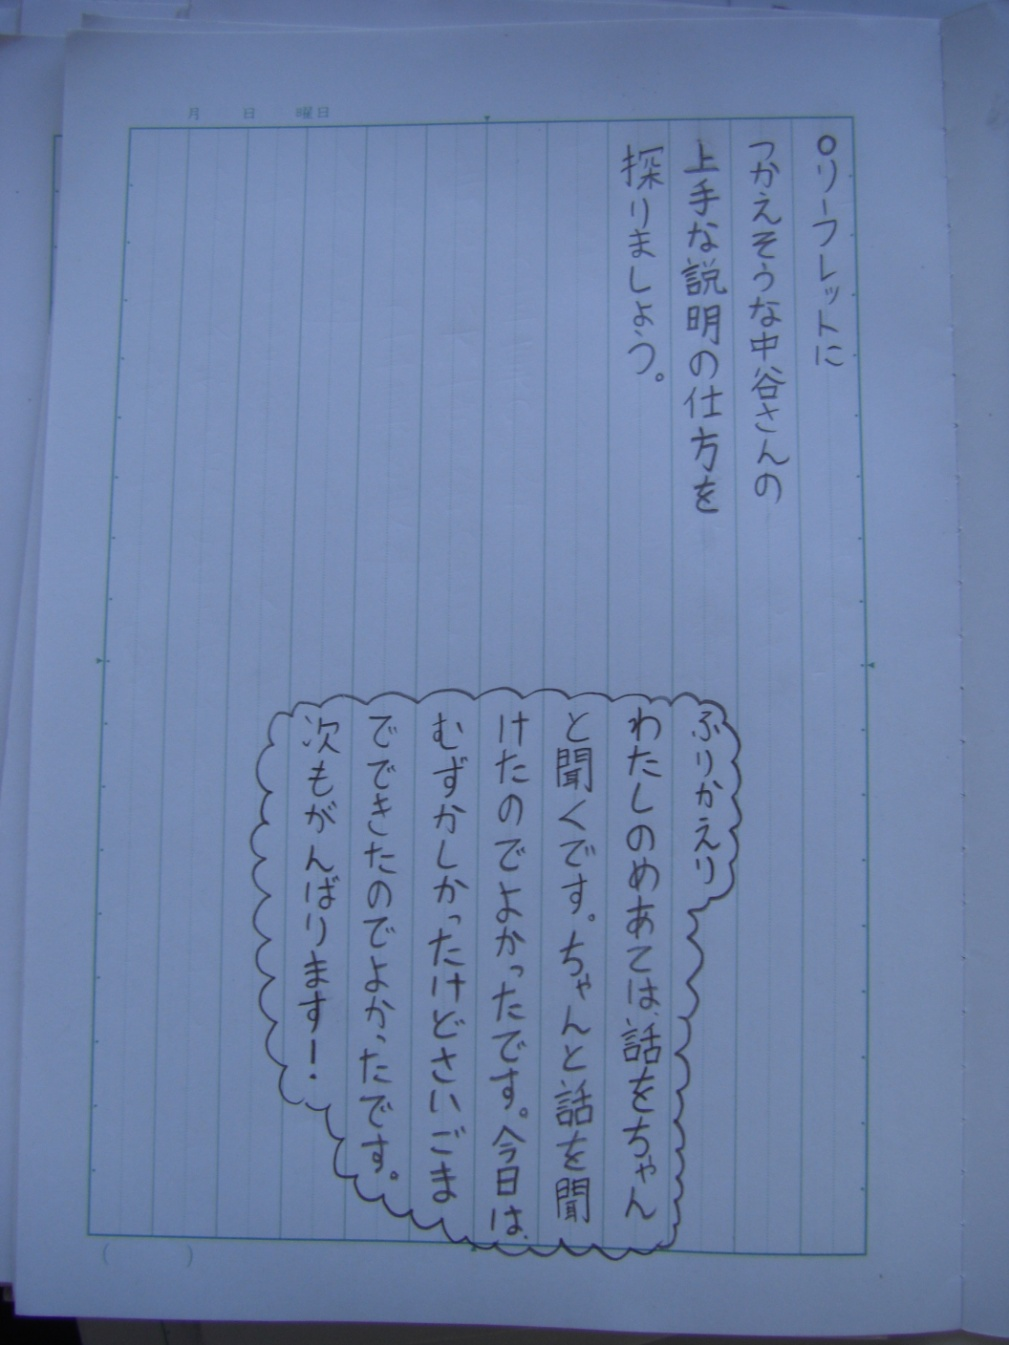 月 日 曜日
○リーフレットに
つかえそうな中谷さんの
上手な説明の仕方を
探りましょう。
ふりかえり
わたしのめあては、話をちゃん
と聞くです。ちゃんと話を聞
けたのでよかったです。今日は、
むずかしかったけどさいごま
でできたのでよかったです。
次もがんばります!
( )